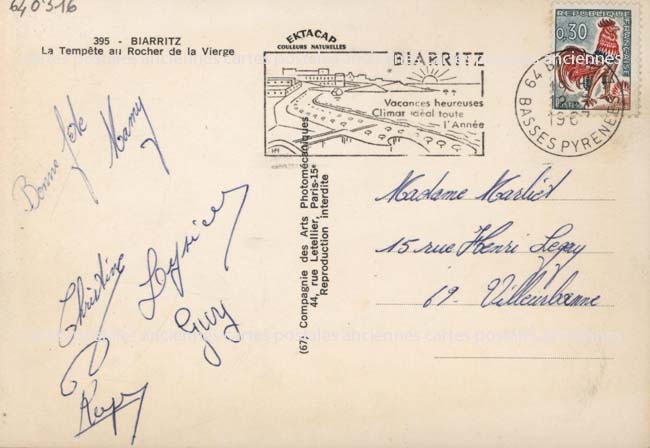 640316
395 - BIARRITZ
La Tempête au Rocher de la Vierge
EKTACAP
COULEURS NATURELLES
BIARRITZ
Vacances heureuses
Climat idéal toute
l'Année
REPUBLIQUE FRANÇAISE
0,30
64
1967
BASSES PYRENEES
Bonne fête
Mamy
Christine
Guy
Roger
(67) Compagnie des Arts Photomécaniques
44, rue Letellier, Paris-15e
Reproduction interdite
Madame Marliet
15 rue Henri Legay
69. Villeurbanne
cartes postales anciennes cartes postales anciennes